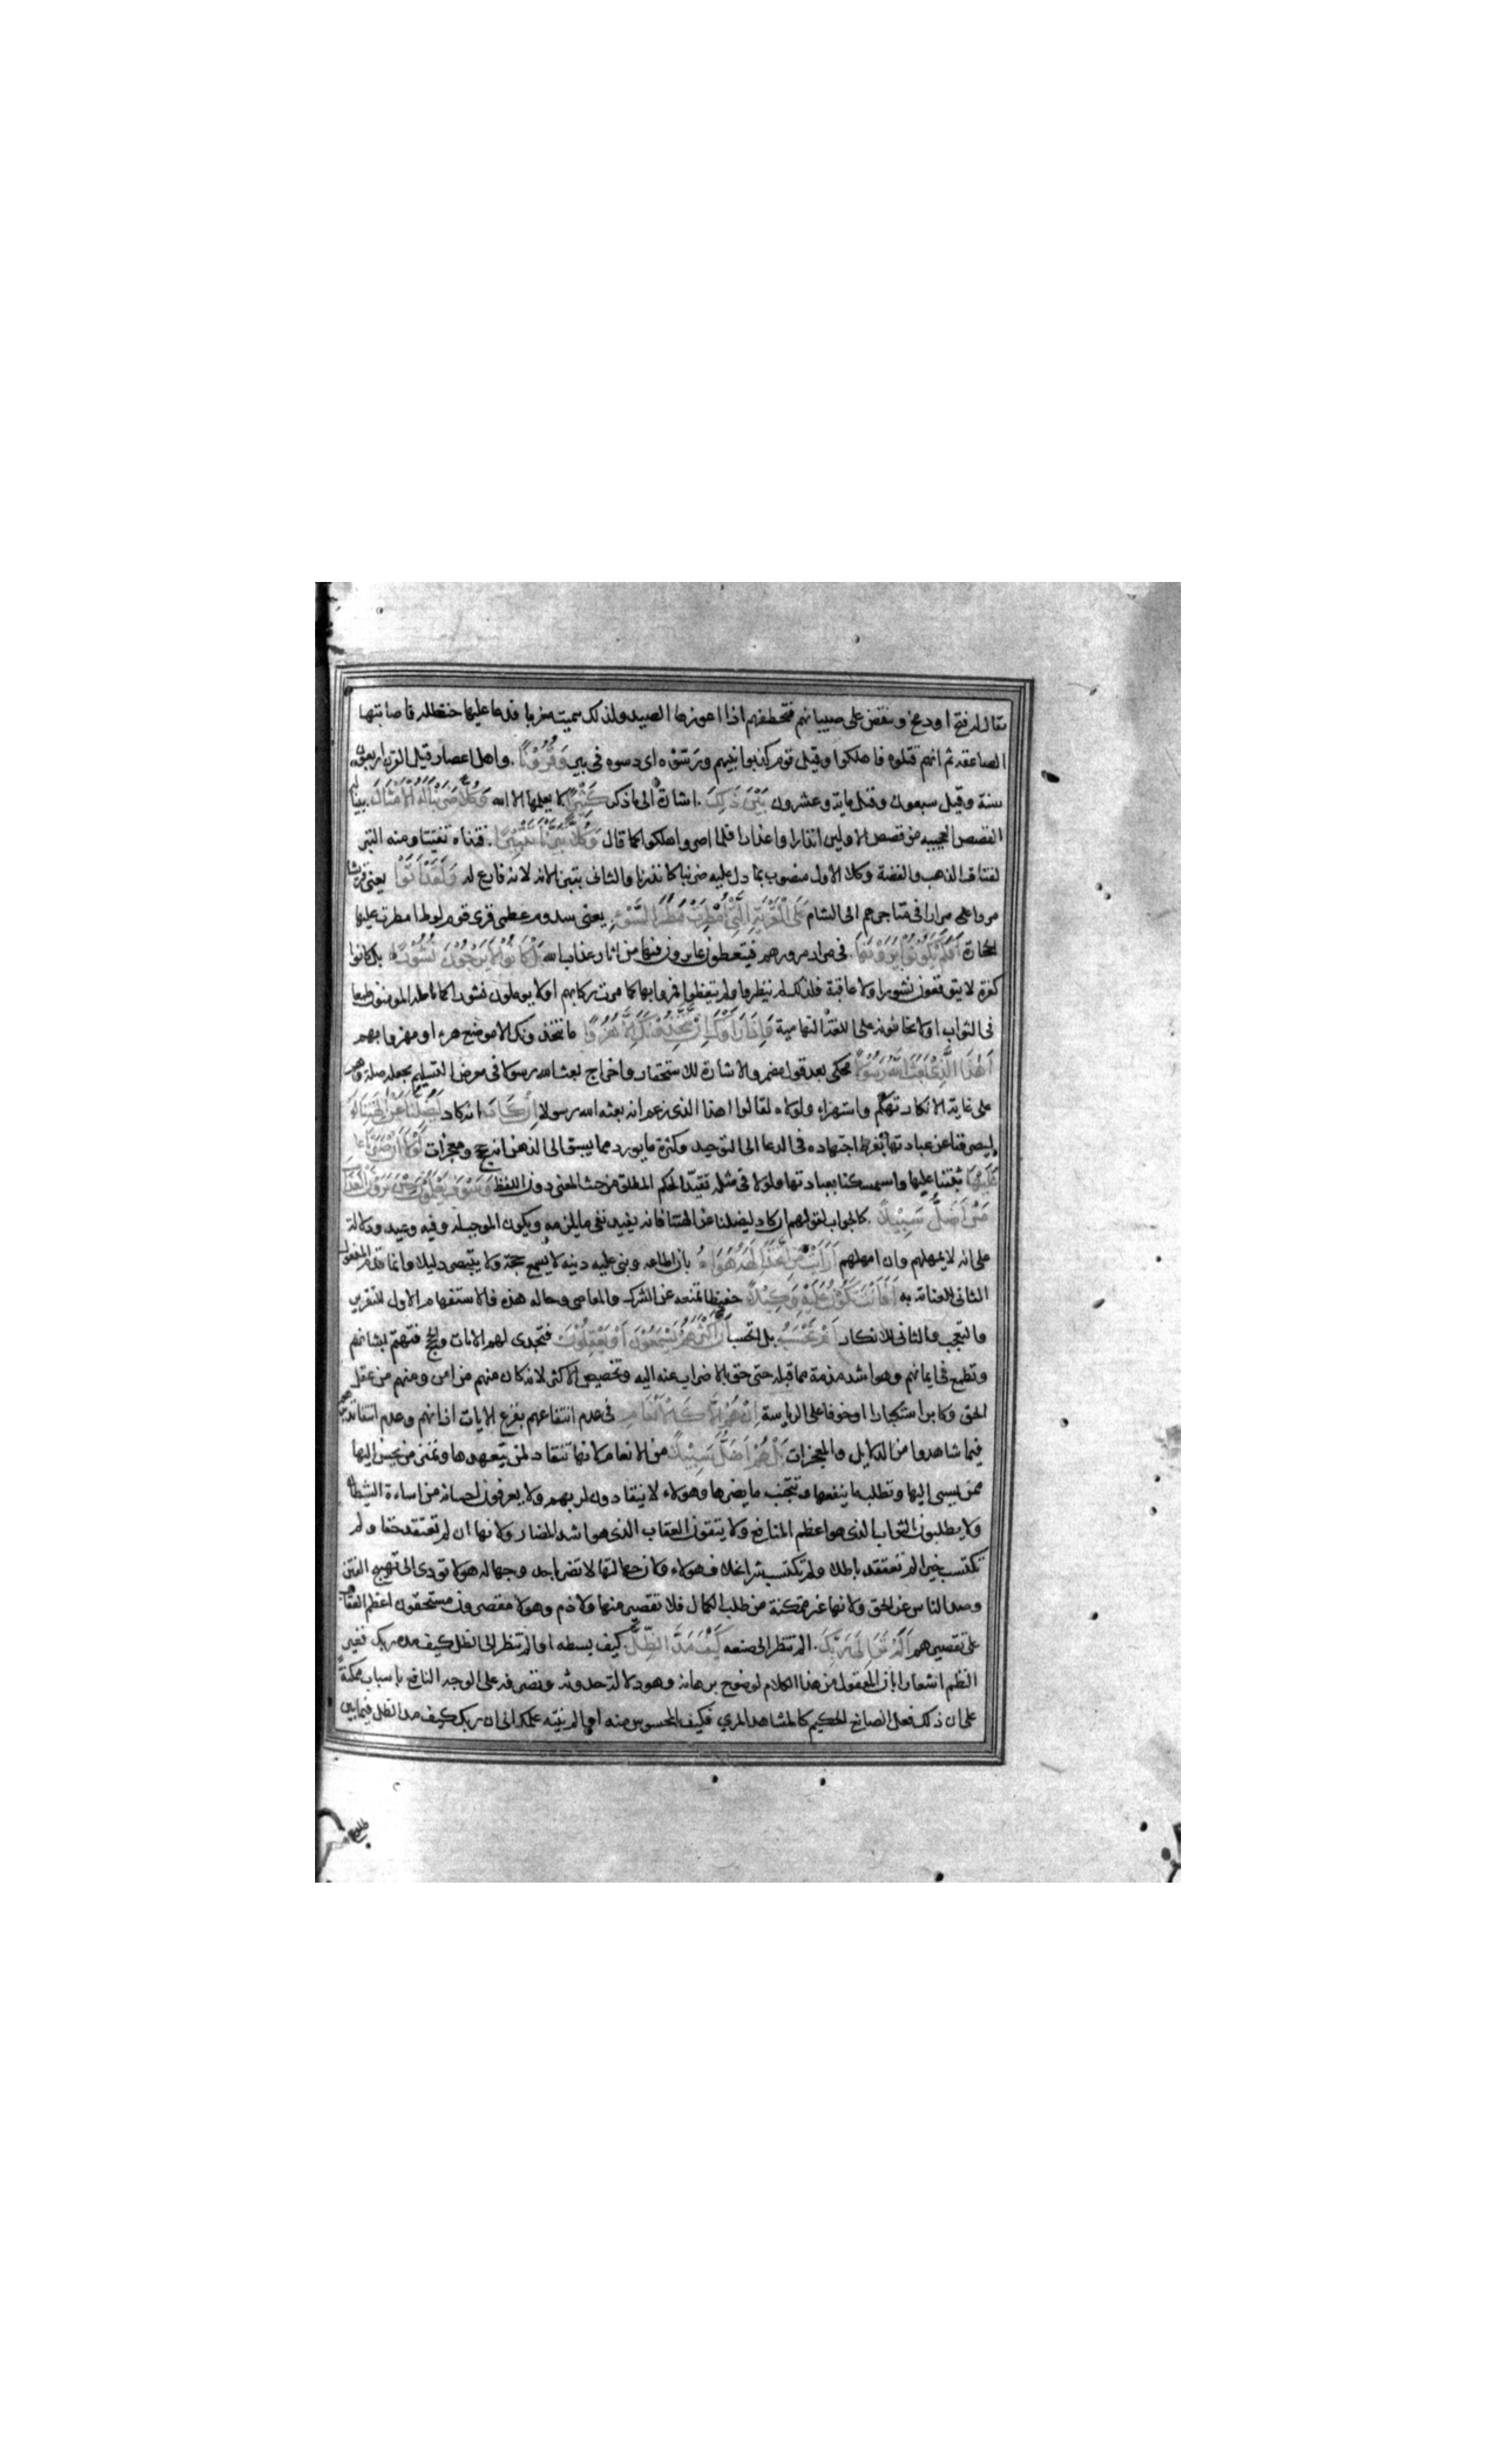 يقال له فتخ او دمخ وينقض على صبيانهم فتخطفهم اذا اعوزها الصيد ولذلك سميت مغربا فدعا عليها حنظلة فاصابتها
الصاعقة ثم انهم قتلوه فاهلكوا وقيل قوم كذبوا نبيهم ورسّوه اى دسوه فى بير وَقُرُوْنًا. واهل اعصار قيل القرن اربعون
سنة وقيل سبعون وقيل ماية وعشرون بَيْنَ ذَلِكَ. اشارة الى ما ذكر كَثِيْرًا لا يعلمها الا الله وَكُلًّا ضَرَبْنَا لَهُ الْاَمْثَالَ بينا له
القصص العجيبه من قصص الاولين انذارا واعذارا فلما اصروا اهلكوا كما قال وَكُلًّا تَبَّرْنَا تَتْبِيْرًا. فتتناه تفتيتا ومنه التبر
لفتات الذهب والفضة وكلا الاول منصوب بما دل عليه ضربنا كانذرنا والثانى بتبرنا لانه فارغ له وَلَقَدْ اَتَوْا يعنى قريشا
مروا على مرارا فى متاجرهم الى الشام عَلَى الْقَرْيَةِ الَّتِيْ اُمْطِرَتْ مَطَرَ السَّوْءِ يعنى سدوم عظمى قرى قوم لوط امطرت عليها
الحجارة اَفَلَمْ يَكُوْنُوْا يَرَوْنَهَا. فى مرار مرورهم فيتعظون بما يرون فيها من اثار عذاب الله بَلْ كَانُوْا لَا يَرْجُوْنَ نُشُوْرًا بل كانوا
كفرة لا يتوقعون نشورا ولا عاقبة فلذلك لم ينظروا ولم يتعظوا فمروا بها كما مرت ركابهم او لا يوملون نشورا كما يامله المومنون طمعا
فى الثواب او لا يخافونه على اللغة التهامية وَاِذَا رَاَوْكَ اِنْ يَتَّخِذُوْنَكَ اِلَّا هُزُوًا ما يتخذونك الا موضع هزء او مهزوا بهم
اَهٰذَا الَّذِيْ بَعَثَ اللّٰهُ رَسُوْلًا محكى بعد قول مضمر والاشارة للاستحقار واخراج بعث الله رسولا فى معرض التسليم بجعله صلة وهم
على غاية الانكار تهكم واستهزاء ولولاه لقالوا اهذا الذى زعم انه بعثه الله رسولا اِنْ كَادَ انه كاد لَيُضِلُّنَا عَنْ اٰلِهَتِنَا
ليصرفنا عن عبادتها بفرط اجتهاده فى الدعا الى التوحيد وكثرة ما يورد مما يسبق الى الذهن انه حجج ومعجزات لَوْلَا اَنْ صَبَرْنَا
عَلَيْهَا ثبتنا عليها واستمسكنا بعبادتها ولولا فى مثله تقيد الحكم المطلق من حيث المعنى دون اللفظ وَسَوْفَ يَعْلَمُوْنَ حِيْنَ يَرَوْنَ الْعَذَابَ
مَنْ اَضَلُّ سَبِيْلًا. كالجواب لقولهم ان كاد ليضلنا عن الهتنا فانه يفيد نفى ما يلزمه ويكون الموجب له وفيه وعيد ودلالة
على انه لا يهملهم وان امهلهم اَرَاَيْتَ مَنِ اتَّخَذَ اِلٰهَهُ هَوَاهُ بان اطاعه وبنى عليه دينه لا يسمع حجة ولا يتبصر دليلا وانما قدم المفعول
الثانى للعناية به اَفَاَنْتَ تَكُوْنُ عَلَيْهِ وَكِيْلًا حفيظا تمنعه عن الشرك والمعاصى وحاله هذه فالاستفهام الاول للتقرير
والتعجب والثانى للانكار اَمْ تَحْسَبُ بل اتحسب اَنَّ اَكْثَرَهُمْ يَسْمَعُوْنَ اَوْ يَعْقِلُوْنَ فتجدى لهم الايات والحجج فتهتم بشانهم
وتطمع فى ايمانهم وهو اشد مذمة مما قبله حتى حق بالاضراب عنه اليه وتخصيص الاكثر لانه كان منهم من امن ومنهم من عقل
الحق وكابر استكبارا او خوفا على الرياسة اِنْ هُمْ اِلَّا كَالْاَنْعَامِ فى عدم انتفاعهم بقرع الايات اذانهم وعدم
فيما شاهدوا من الدلايل والمعجزات بَلْ هُمْ اَضَلُّ سَبِيْلًا من الانعام لانها تنقاد لمن يتعهدها وتميز من يحسن اليها
ممن يسى اليها وتطلب ما ينفعها وتتجنب ما يضرها وهولاء لا ينقادون لربهم ولا يعرفون احسانه من اساءة الشيطان
ولا يطلبون الثواب الذى هو اعظم المنافع ولا يتقون العقاب الذى هو اشد المضار ولانها ان لم تعتقد حقا ولم
تكتسب خيرا لم تعتقد باطلا ولم تكتسب شرا بخلاف هولاء ولان جهالتها لا تضر باحد وجهالة هولا تودى الى تهييج الفتن
وصد الناس عن الحق ولانها غير متمكنة من طلب الكمال فلا تقصير منها ولا ذم وهولا مقصرون مستحقون اعظم العقاب
على تقصيرهم اَلَمْ تَرَ اِلٰى رَبِّكَ. الم تنظر الى صنعه كَيْفَ مَدَّ الظِّلَّ كيف بسطه او الم تنظر الى الظل كيف مده ربك فغير
النظم اشعارا بان المعقول من هذا الكلام لوضوح برهانه وهو دلالة حدوثه وتصرفه على الوجه النافع باسباب ممكنة
على ان ذلك فعل الصانع الحكيم كالمشاهد المرى فكيف بالمحسوس منه او الم ينته علمك الى ان ربك كيف مد الظل فيما بين
طلوع